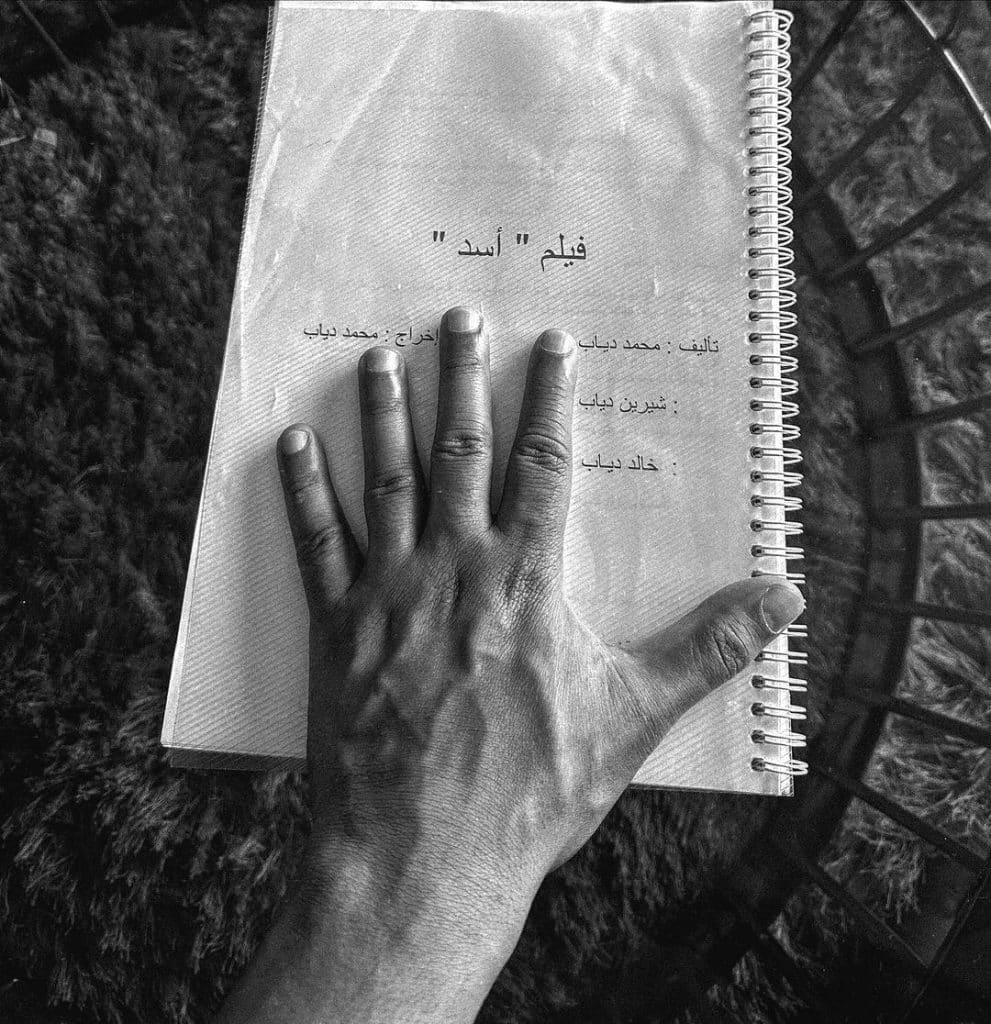 فيلم " أسد "
تأليف : محمد دياب إخراج : محمد دياب
: شيرين دياب
: خالد دياب